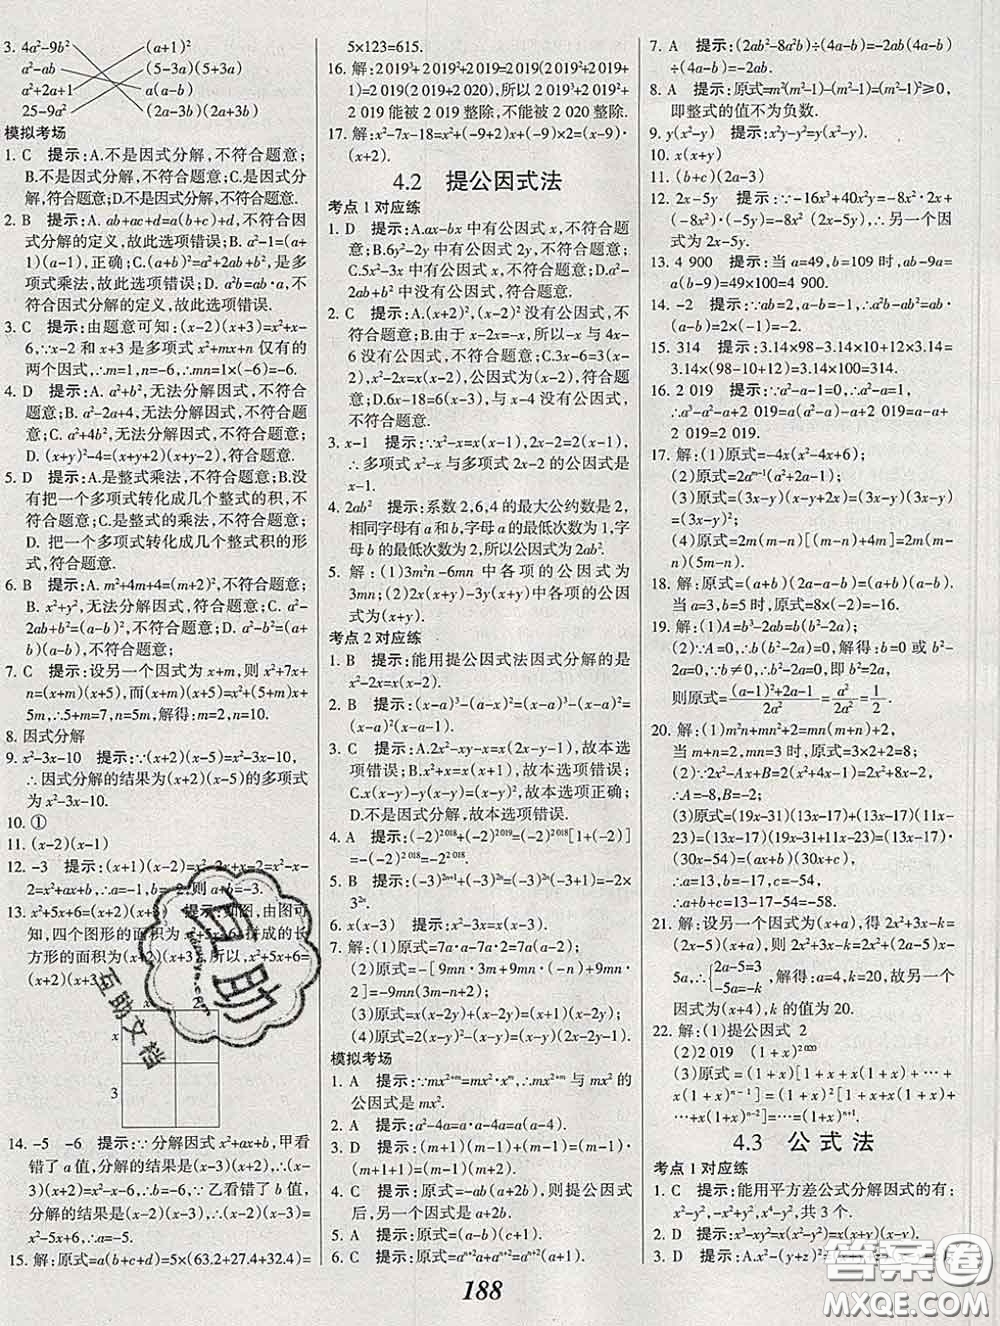 3. 4a²-9b² (a+1)²
a²-ab (5-3a)(5+3a)
a²+2a+1 a(a-b)
25-9a² (2a-3b)(2a+3b)
模拟考场
1. C 提示:A.不是因式分解,不符合题意;
B.不是因式分解,不符合题意;C.是因式分
解,符合题意;D.不是因式分解,不符合题意.
2. B 提示:A. ab+ac+d=a(b+c)+d,不符合因
式分解的定义,故此选项错误;B. a²-1=(a+
1)(a-1),正确;C.(a+b)²=a²+2ab+b²,是多
项式乘法,故此选项错误;D. a²b=ab·a,不
符合因式分解的定义,故此选项错误.
3. C 提示:由题意可知:(x-2)(x+3)=x²+x-
6,∵x-2 和 x+3是多项式 x²+mx+n 仅有的
两个因式,∴m=1,n=-6,∴mn=1×(-6)=-6.
4. D 提示:A. a²+b²,无法分解因式,不符合
题意;B. a²-2a+4,无法分解因式,不符合题
意;C. a²+4b²,无法分解因式,不符合题意;
D. (x+y)²-4=(x+y+2)(x+y-2),符合题意.
5. D 提示:A.是整式乘法,不符合题意;B.
没有把一个多项式转化成几个整式的积,不
符合题意;C.是整式的乘法,不符合题意;
D. 把一个多项式转化成几个整式积的形
式,符合题意.
6. B 提示:A. m²+4m+4=(m+2)²,不符合题意;
B. x²+y²,无法分解因式,符合题意;C. a²-
2ab+b²=(a-b)²,不符合题意;D. a²-b²=(a+
b)(a-b),不符合题意;
7. C 提示:设另一个因式为 x+m,则 x²+7x+
n=(x+m)(x+5),而(x+m)(x+5)=x²+(5+m)x+
5m,∴5+m=7,n=5m,解得:m=2,n=10.
8. 因式分解
9. x²-3x-10 提示:∵(x+2)(x-5)=x²-3x-10,
∴因式分解的结果为(x+2)(x-5)的多项式
为 x²-3x-10.
10. ①
11. (x-2)(x-1)
12. -3 提示:(x+1)(x-2)=x²-2x+x-
2=x²+ax+b,∴a=-1,b=-2,则 a+b=-3.
13. x²+5x+6=(x+2)(x+3) 提示:如图,由图可
知,四个图形的面积为 x²+5x+6,拼成的长
方形的面积为(x+2)(x+3).所以,x²+5x+6=
(x+2)(x+3).
x
3
14. -5 -6 提示:∵分解因式 x²+ax+b,甲看
错了 a值,分解的结果是(x-3)(x+2),∴(x-
3)(x+2)=x²-x-6,∴b=-6,∵乙看错了 b 值,
分解的结果为(x-2)(x-3),∴(x-2)(x-3)=
x²-5x+6,∴a=-5.
15. 解:原式=a(b+c+d)=5×(63.2+27.4+32.4)=
5×123=615.
16. 解:2 019³+2 019²+2 019=2 019(2 019²+2 019+
1)=2 019(2 019×2 020+1),所以 2 019³+2 019²+
2 019 能被 2 019 整除,不能被 2 020 整除.
17. 解:x²-7x-18=x²+(-9+2)x+(-9)×2=(x-9)·
(x+2).
4.2 提公因式法
考点 1 对应练
1. D 提示:A.ax-bx 中有公因式 x,不符合题
意;B.6y²-2y 中有公因式 2y,不符合题意;
C.5x²-3x 中有公因式 x,不符合题意;D.a²-
2ab+b² 中没有公因式,符合题意.
2. C 提示:A.(x+2)²,(x-2)² 没有公因式,不
符合题意;B.由于 x-2x=-x,所以-x 与 4x-
6没有公因式,不符合题意;C.3x-6=3(x-
2),x²-2x=x(x-2),有公因式(x-2),符合题
意;D.6x-18=6(x-3),与 x-4 没有公因式,
不符合题意.
3. x-1 提示:∵x²-x=x(x-1),2x-2=2(x-1),
∴多项式 x²-x 与多项式 2x-2 的公因式是
x-1.
4. 2ab² 提示:系数 2,6,4 的最大公约数是 2,
相同字母有 a 和 b,字母 a 的最低次数为 1,字
母 b 的最低次数为 2,所以公因式为 2ab².
5. 解:(1)3m²n-6mn 中各项的公因式为
3mn;(2)2x(x+y)-3y(x+y)中各项的公因
式为(x+y).
考点 2 对应练
1. B 提示:能用提公因式法因式分解的是
x²-2x=x(x-2).
2. B 提示:(x-a)³-(a-x)²=(x-a)³-(x-a)²=
(x-a)²(x-a-1).
3. C 提示:A.2x²-xy-x=x(2x-y-1),故本选
项错误;B.因式分解错误,故本选项错误;
C.x(x-y)-y(x-y)=(x-y)²,故本选项正确;
D.不是因式分解,故本选项错误.
4. A 提示:(-2)²⁰¹⁸+(-2)²⁰¹⁹=(-2)²⁰¹⁸[1+(-2)]
=-(-2)²⁰¹⁸=-2²⁰¹⁸.
5. B 提示:(-3)²ⁿ⁺¹+(-3)²ⁿ=(-3)²ⁿ(-3+1)=-2×
3²ⁿ.
6. x(x-3) 提示:x²-3x=x(x-3).
7. 解:(1)原式=7a·a-7a·2=7a(a-2);
(2)原式=-[9mn·3m+9mn·(-1)]
=-9mn(3m-1);
(3)原式=x(x-2y)+(x-2y)=(x+1)(x-2y);
(4)原式=2(x-y)²-(x-y)=(x-y)(2x-2y-1).
模拟考场
1. A 提示:∵mx²⁺ᵐ=mx²·xᵐ,∴mx²⁺ᵐ与 mx² 的
公因式是 mx².
2. A 提示:a²-4a=a·a-4·a=a(a-4).
3. D 提示:(m+1)(m-1)+(m-1)=(m-1)·
(m+1+1)=(m-1)(m+2).
4. C 提示:原式=-ab(a+2b),则提公因式
后,另一个因式是 a+2b.
5. A 提示:原式=(a-b)(1-c).
6. C 提示:原式=aⁿ⁺²a+aⁿ⁺²=aⁿ⁺²(a+1).
7. A 提示:(2ab²-8a²b)÷(4a-b)=-2ab(4a-b)
÷(4a-b)=-2ab.
8. A 提示:原式=m²(m²-1)-(m²-1)=(m²-1)²≥0,
即整式的值不为负数.
9. y(x²-y) 提示:x²y-y²=y(x²-y).
10. x(x+y)
11. (b+c)(2a-3)
12. 2x-5y 提示:∵-16x³+40x²y=-8x²·2x+
(-8x²)·(-5y)=-8x²(2x-5y),∴另一个因
式为 2x-5y.
13. 4 900 提示:当 a=49,b=109 时,ab-9a=
a(b-9)=49×100=4 900.
14. -2 提示:∵ab=2,a-b=-1,∴a²b-ab²=ab·
(a-b)=2×(-1)=-2.
15. 314 提示:3.14×98-3.14×10+12×3.14=
3.14×(98-10+12)=3.14×100=314.
16. 2 019 提示:∵a²-a-1=0,∴a²-a=1,
∴a³-a²-a+2 019=a(a²-a)-a+2 019=a-a+
2 019=2 019.
17. 解:(1)原式=-4x(x²-4x+6);
(2)原式=2aᵐ⁻¹(a²+2a-1);
(3)原式=(3x-y)(x-y+2x)=(3x-y)(3x-y)=
(3x-y)²;
(4)原式=2m(m-n)[(m-n)+4m]=2m(m-n)
(5m-n).
18. 解:原式=(a+b)(2a-a-b)=(a+b)(a-b).
当 a=3,b=5 时,原式=8×(-2)=-16.
19. 解:(1)A=b³-2ab=b(b²-2a);
(2)∵A=0,∴b(b²-2a)=0,解得 b=0 或 b²-
2a=0.∵b≠0,∴b²-2a=0,即 b²=2a,
则原式=(a-1)²+2a-1/2a²=a²/2a²=1/2.
20. 解:(1)m²n+mn²+2mn=mn(m+n)+2,
当 m+n=2,mn=3 时,原式=3×2+2=8;
(2)∵2x²-Ax+B=2(x²+4x-1)=2x²+8x-2,
∴A=-8,B=-2;
(3)原式=(19x-31)(13x-17)+(13x-17)(11x-
23)=(13x-17)(19x-31+11x-23)=(13x-17)·
(30x-54)=(ax+b)(30x+c),
∴a=13,b=-17,c=-54,
∴a+b+c=13-17-54=-58.
21. 解:设另一个因式为(x+a),得 2x²+3x-k=
(2x-5)(x+a),则 2x²+3x-k=2x²+(2a-5)x-
5a,∴{2a-5=3, -5a=-k, 解得:a=4,k=20,故另一个
因式为(x+4),k 的值为 20.
22. 解:(1)提公因式 2
(2)2 019 (1+x)²⁰²⁰
(3)原式=(1+x)[1+x+x(1+x)+…+
x(1+x)ⁿ⁻¹]=(1+x)²[1+x+x(1+x)
+…+x(1+x)ⁿ⁻²]=…=(1+x)ⁿ⁺¹.
4.3 公式法
考点 1 对应练
1. C 提示:能用平方差公式分解因式的有:
x²-y²,-x²+y²,x⁴-y²,共 3 个.
2. D 提示:x³-xy²=x(x²-y²)=x(x+y)(x-y).
3. D 提示:A.x²-(y+z)²
188
互助
互助文档
答案圈
MXQE.COM